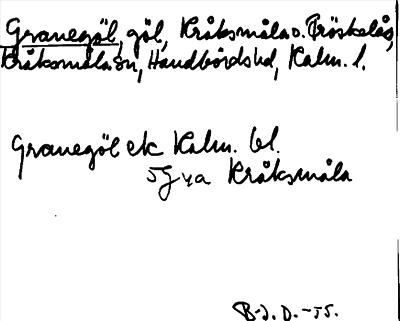 Granegöl, göl, Kråksmåla o. Fröskelås,
Kråksmåla sn, Handbörds hd, Kalm. l.
Granegöl ek Kalm. bl.
5G ya Kråksmåla
B-J. D. -55.